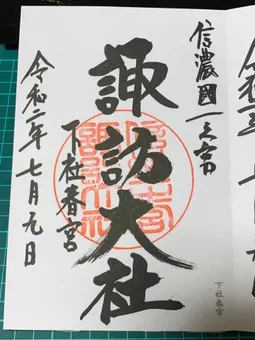 信濃國一之宮
諏訪大社
下社春宮
令和二年七月九日
下社春宮